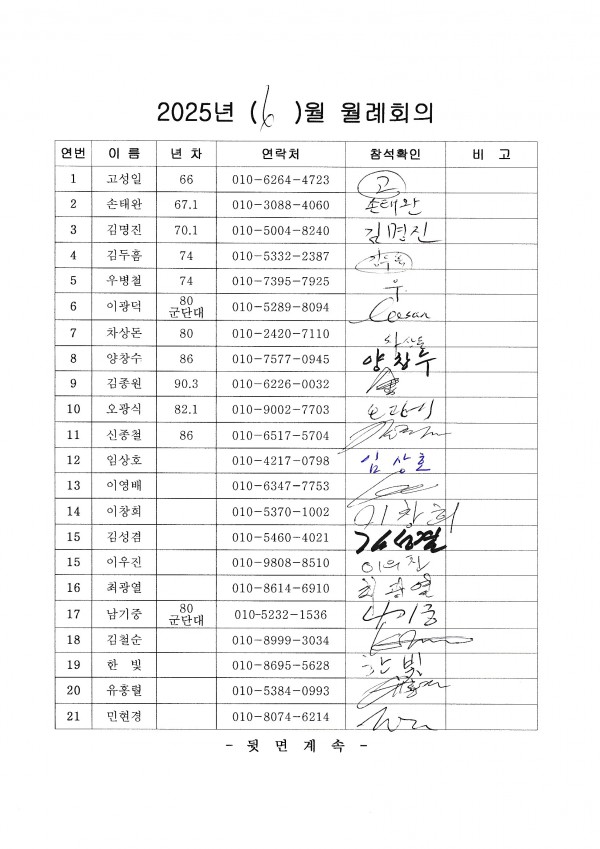 2025년 ( 6 )월 월례회의
연번 이 름 년 차 연락처 참석확인 비 고
1 고성일 66 010-6264-4723 고
2 손태완 67.1 010-3088-4060 손태완
3 김명진 70.1 010-5004-8240 김명진
4 김두흠 74 010-5332-2387
5 우병철 74 010-7395-7925 우
6 이광덕 80 군단대 010-5289-8094
7 차상돈 80 010-2420-7110 차상돈
8 양창수 86 010-7577-0945 양창수
9 김종원 90.3 010-6226-0032
10 오광식 82.1 010-9002-7703 오광식
11 신종철 86 010-6517-5704
12 임상호 010-4217-0798 임상호
13 이영배 010-6347-7753
14 이창희 010-5370-1002 이창희
15 김성겸 010-5460-4021
15 이우진 010-9808-8510
16 최광열 010-8614-6910 최광열
17 남기중 80 군단대 010-5232-1536 남기중
18 김철순 010-8999-3034
19 한 빛 010-8695-5628 한빛
20 유홍렬 010-5384-0993
21 민현경 010-8074-6214
- 뒷 면 계 속 -